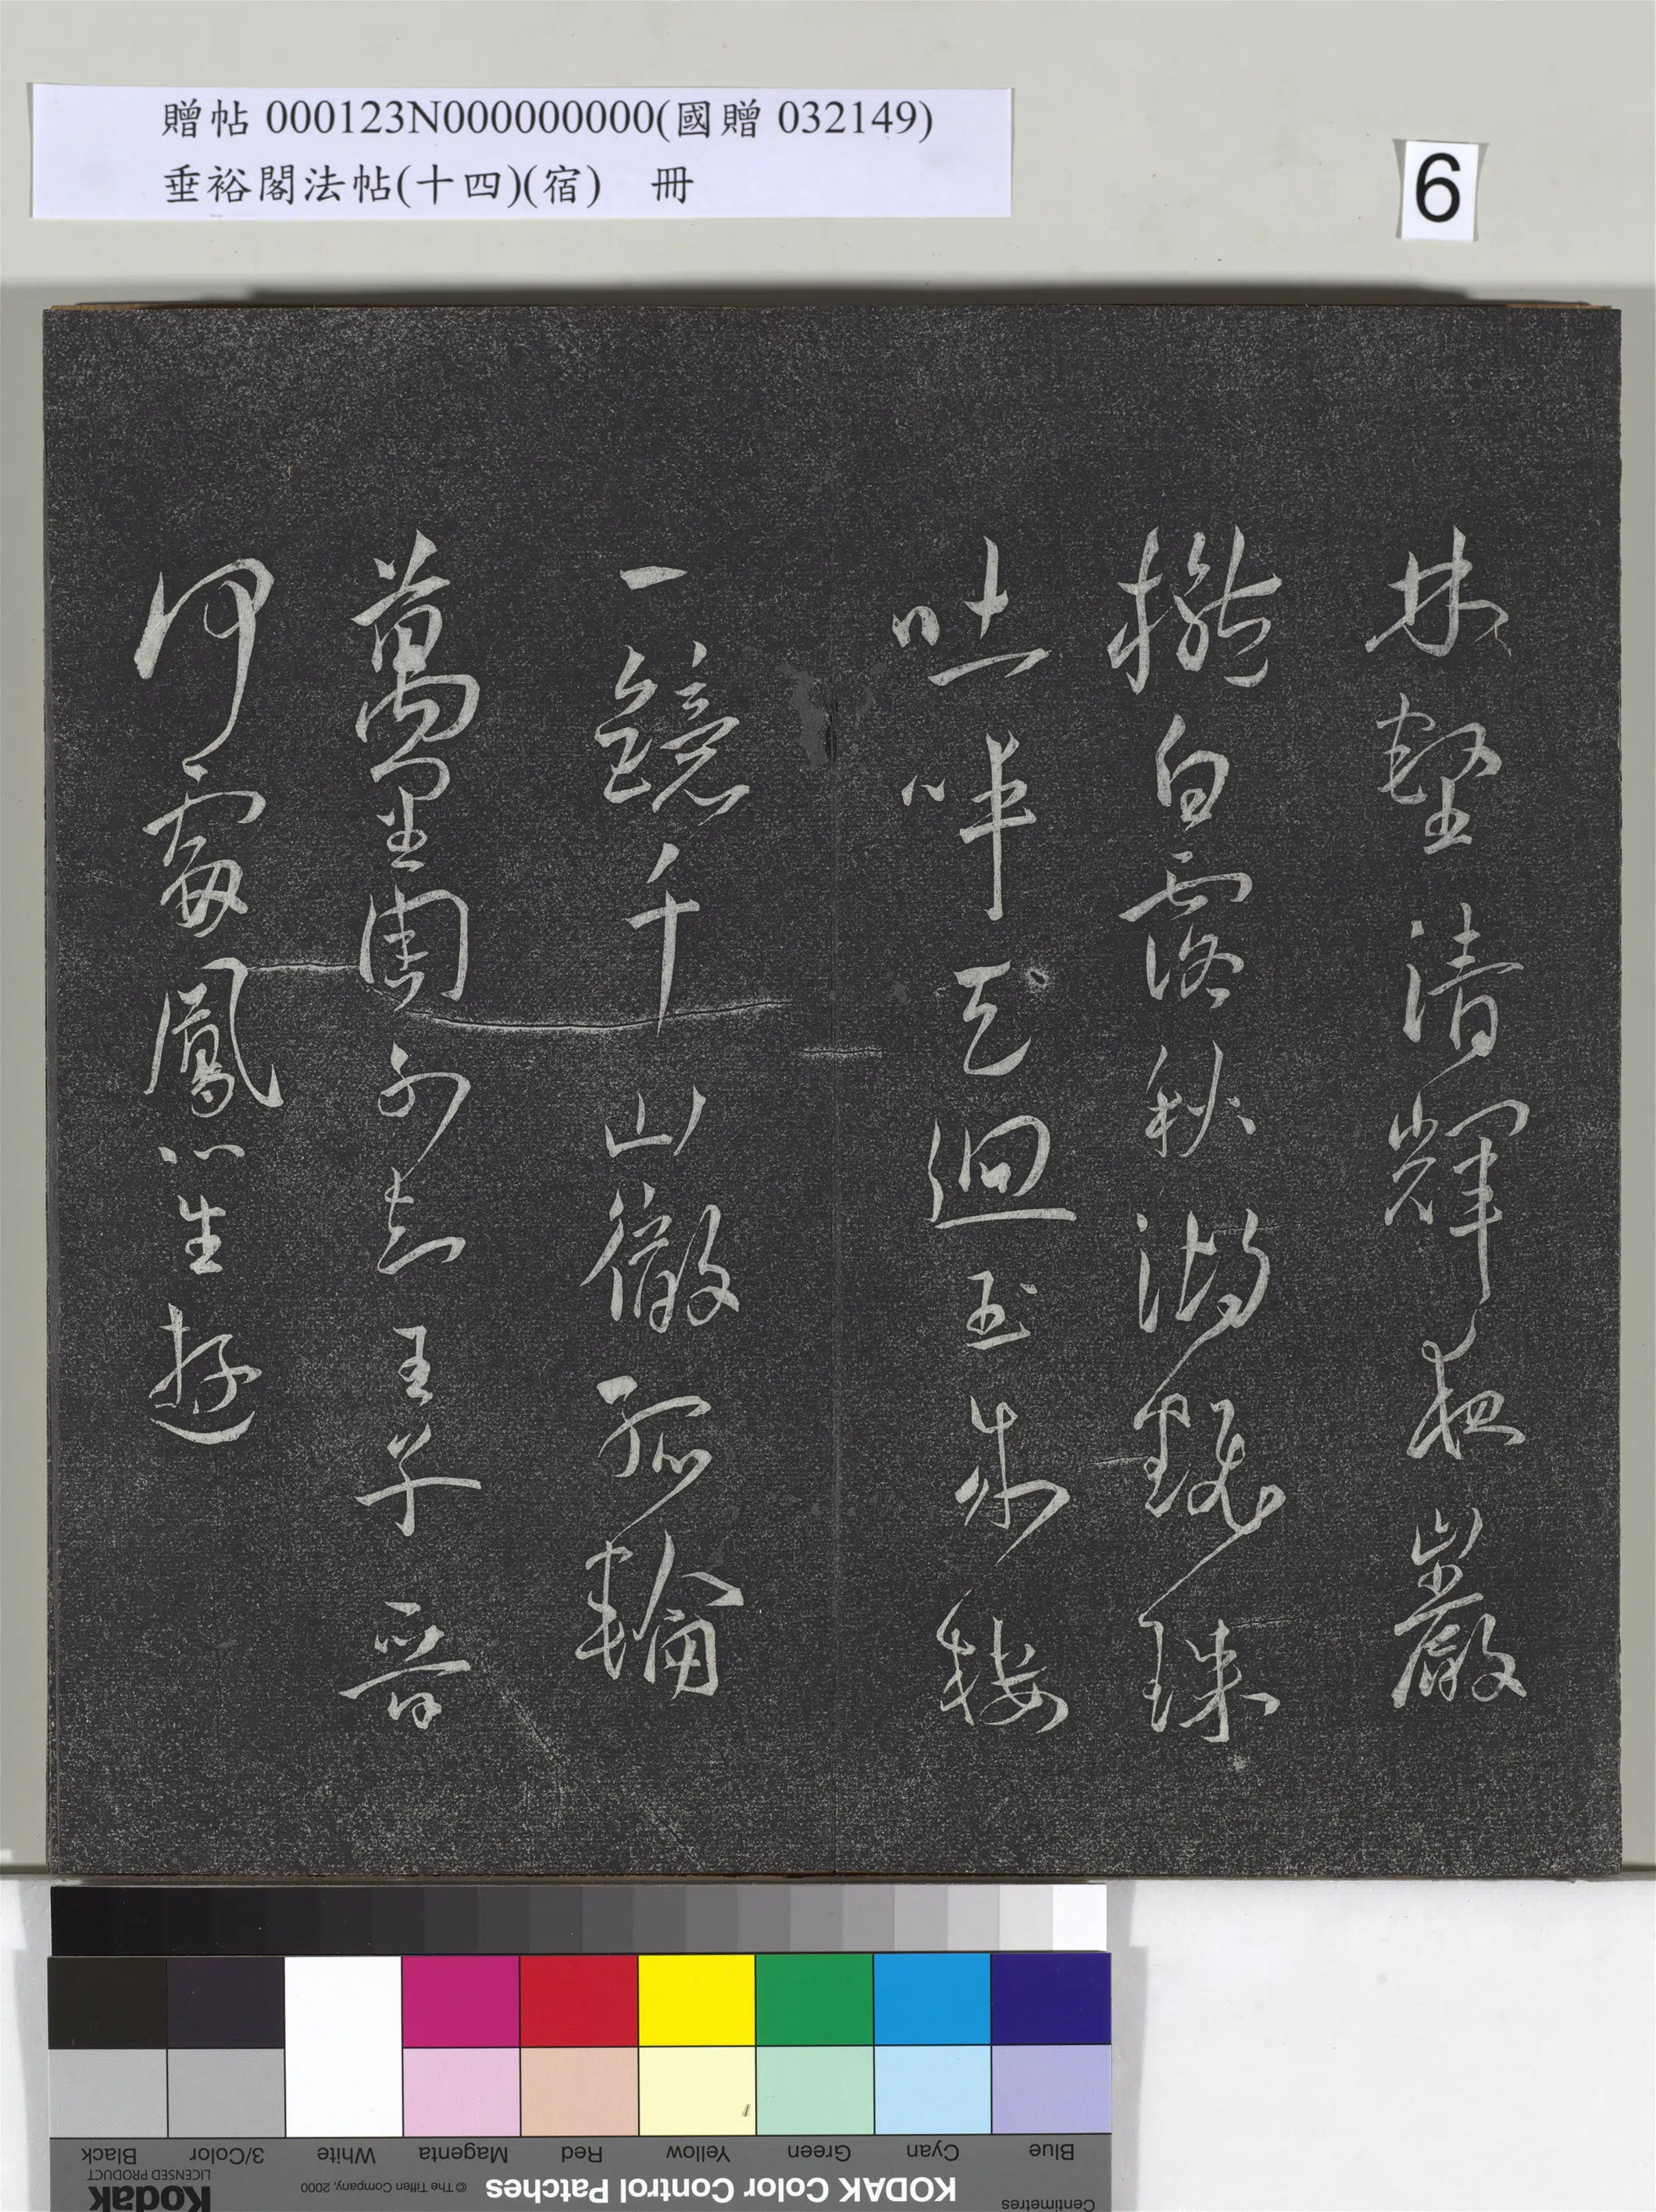 贈帖 000123N000000000(國贈 032149)
垂裕閣法帖(十四)(宿) 冊
6
林壑清輝夜巖
櫳白露秋湖疑珠
吐畔天迴玉作樓
一鏡千山徹孤輪
萬里周不知王子晉
何處鳳笙遊
Blue Cyan Green Yellow Red Magenta White 3/Color Black
Centimetres KODAK Color Control Patches © The Tiffen Company, 2000 Kodak
LICENSED PRODUCT